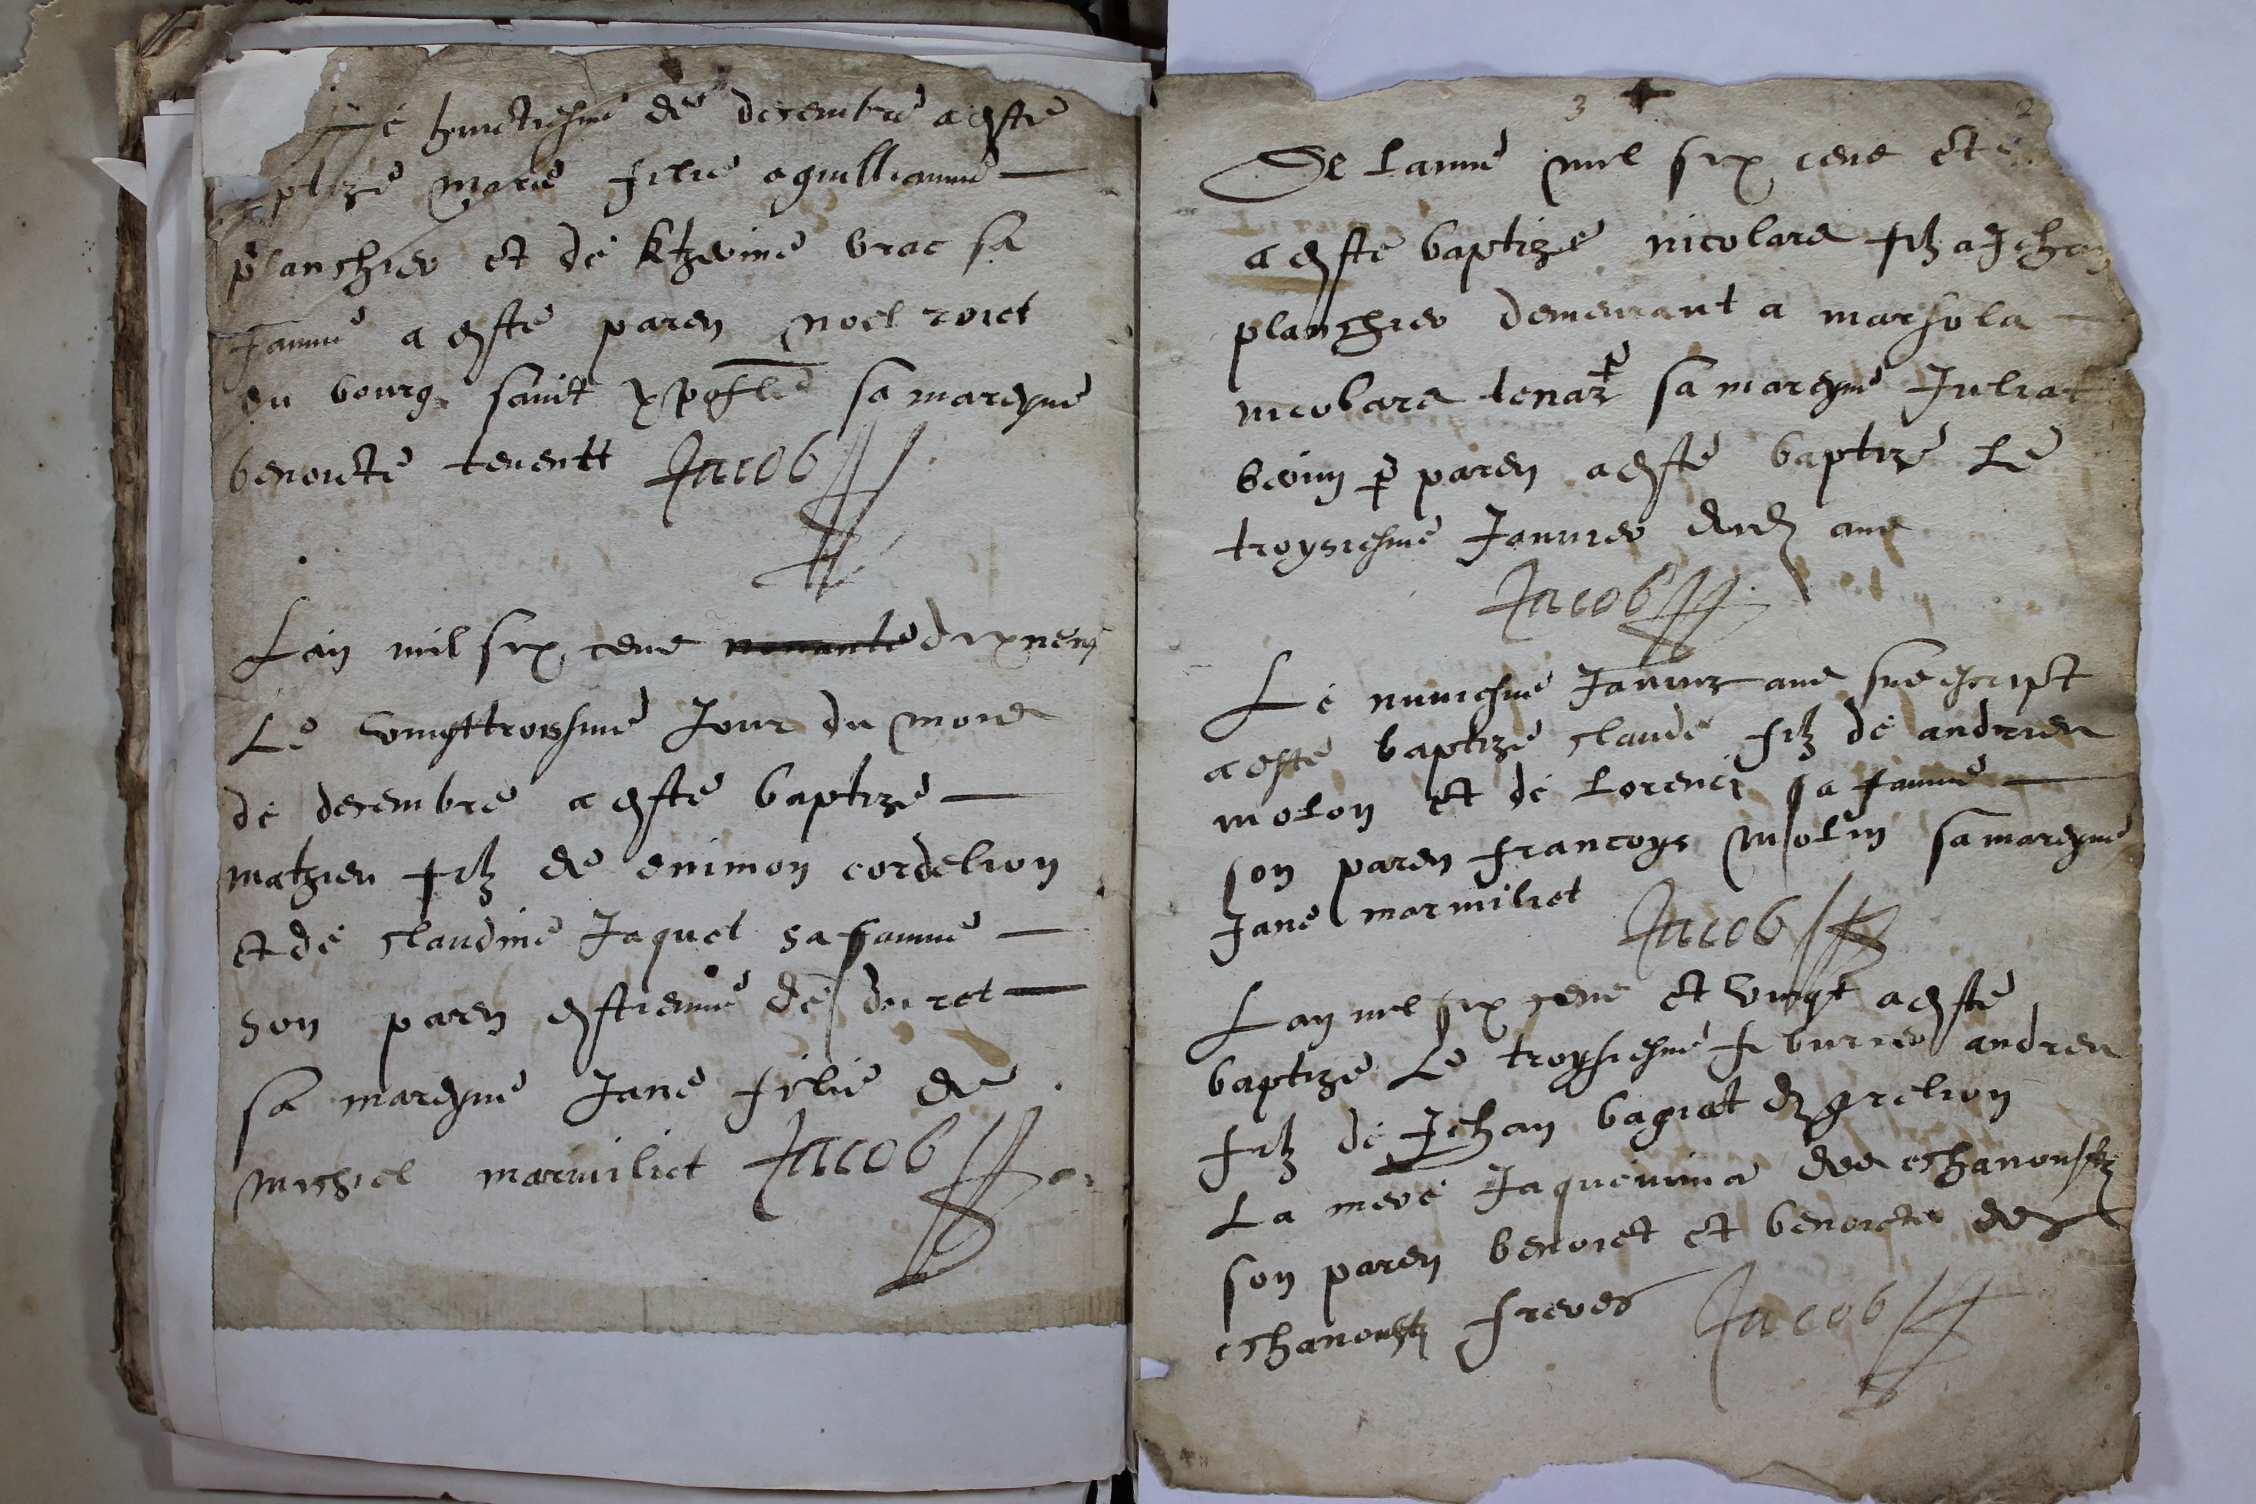 Le huictiesme de decembre a este
ptize marie fillie a guilliaume
planchier et de katherine brac sa
famme a este paren noel roiet
du bourg sainct xpofle sa mareyne
benoicte tenentt Jacob
Lan mil six cens novante dix neuf
Le vingttroissime Jour du mois
de decembre a este baptize
mathieu filz de enimon cordelion
et de claudine Jaquet sa famme
son paren estienne de duret
sa mareyne Jane fillie de
michiel marmiliet Jacob
3
2
De lanne mil six cens et
a este baptize nicolas filz a Jehan
planchier demeurant a marsola
nicolas sa mareyne Juliat
paren a este baptize Le
troysiesme Janvier dud ans
Jacob
Le nuviesme Janvier ans sus escript
a este baptize claude filz de andrieu
molon et de lorence sa famme
son paren francoys molin sa mareyne
Jane marmiliet Jacob
Lan mil six cens et vingt a este
baptize Le troysiesme feburier andreu
filz de Jehan bagiat de grelion
La mere Jaquemina des echanoustz
son paren benoict et benoicte des
echanoustz freres Jacob